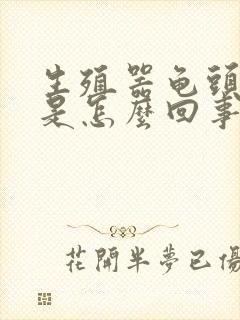 生殖器龟頭
是怎麼回事
花開半夢已傷